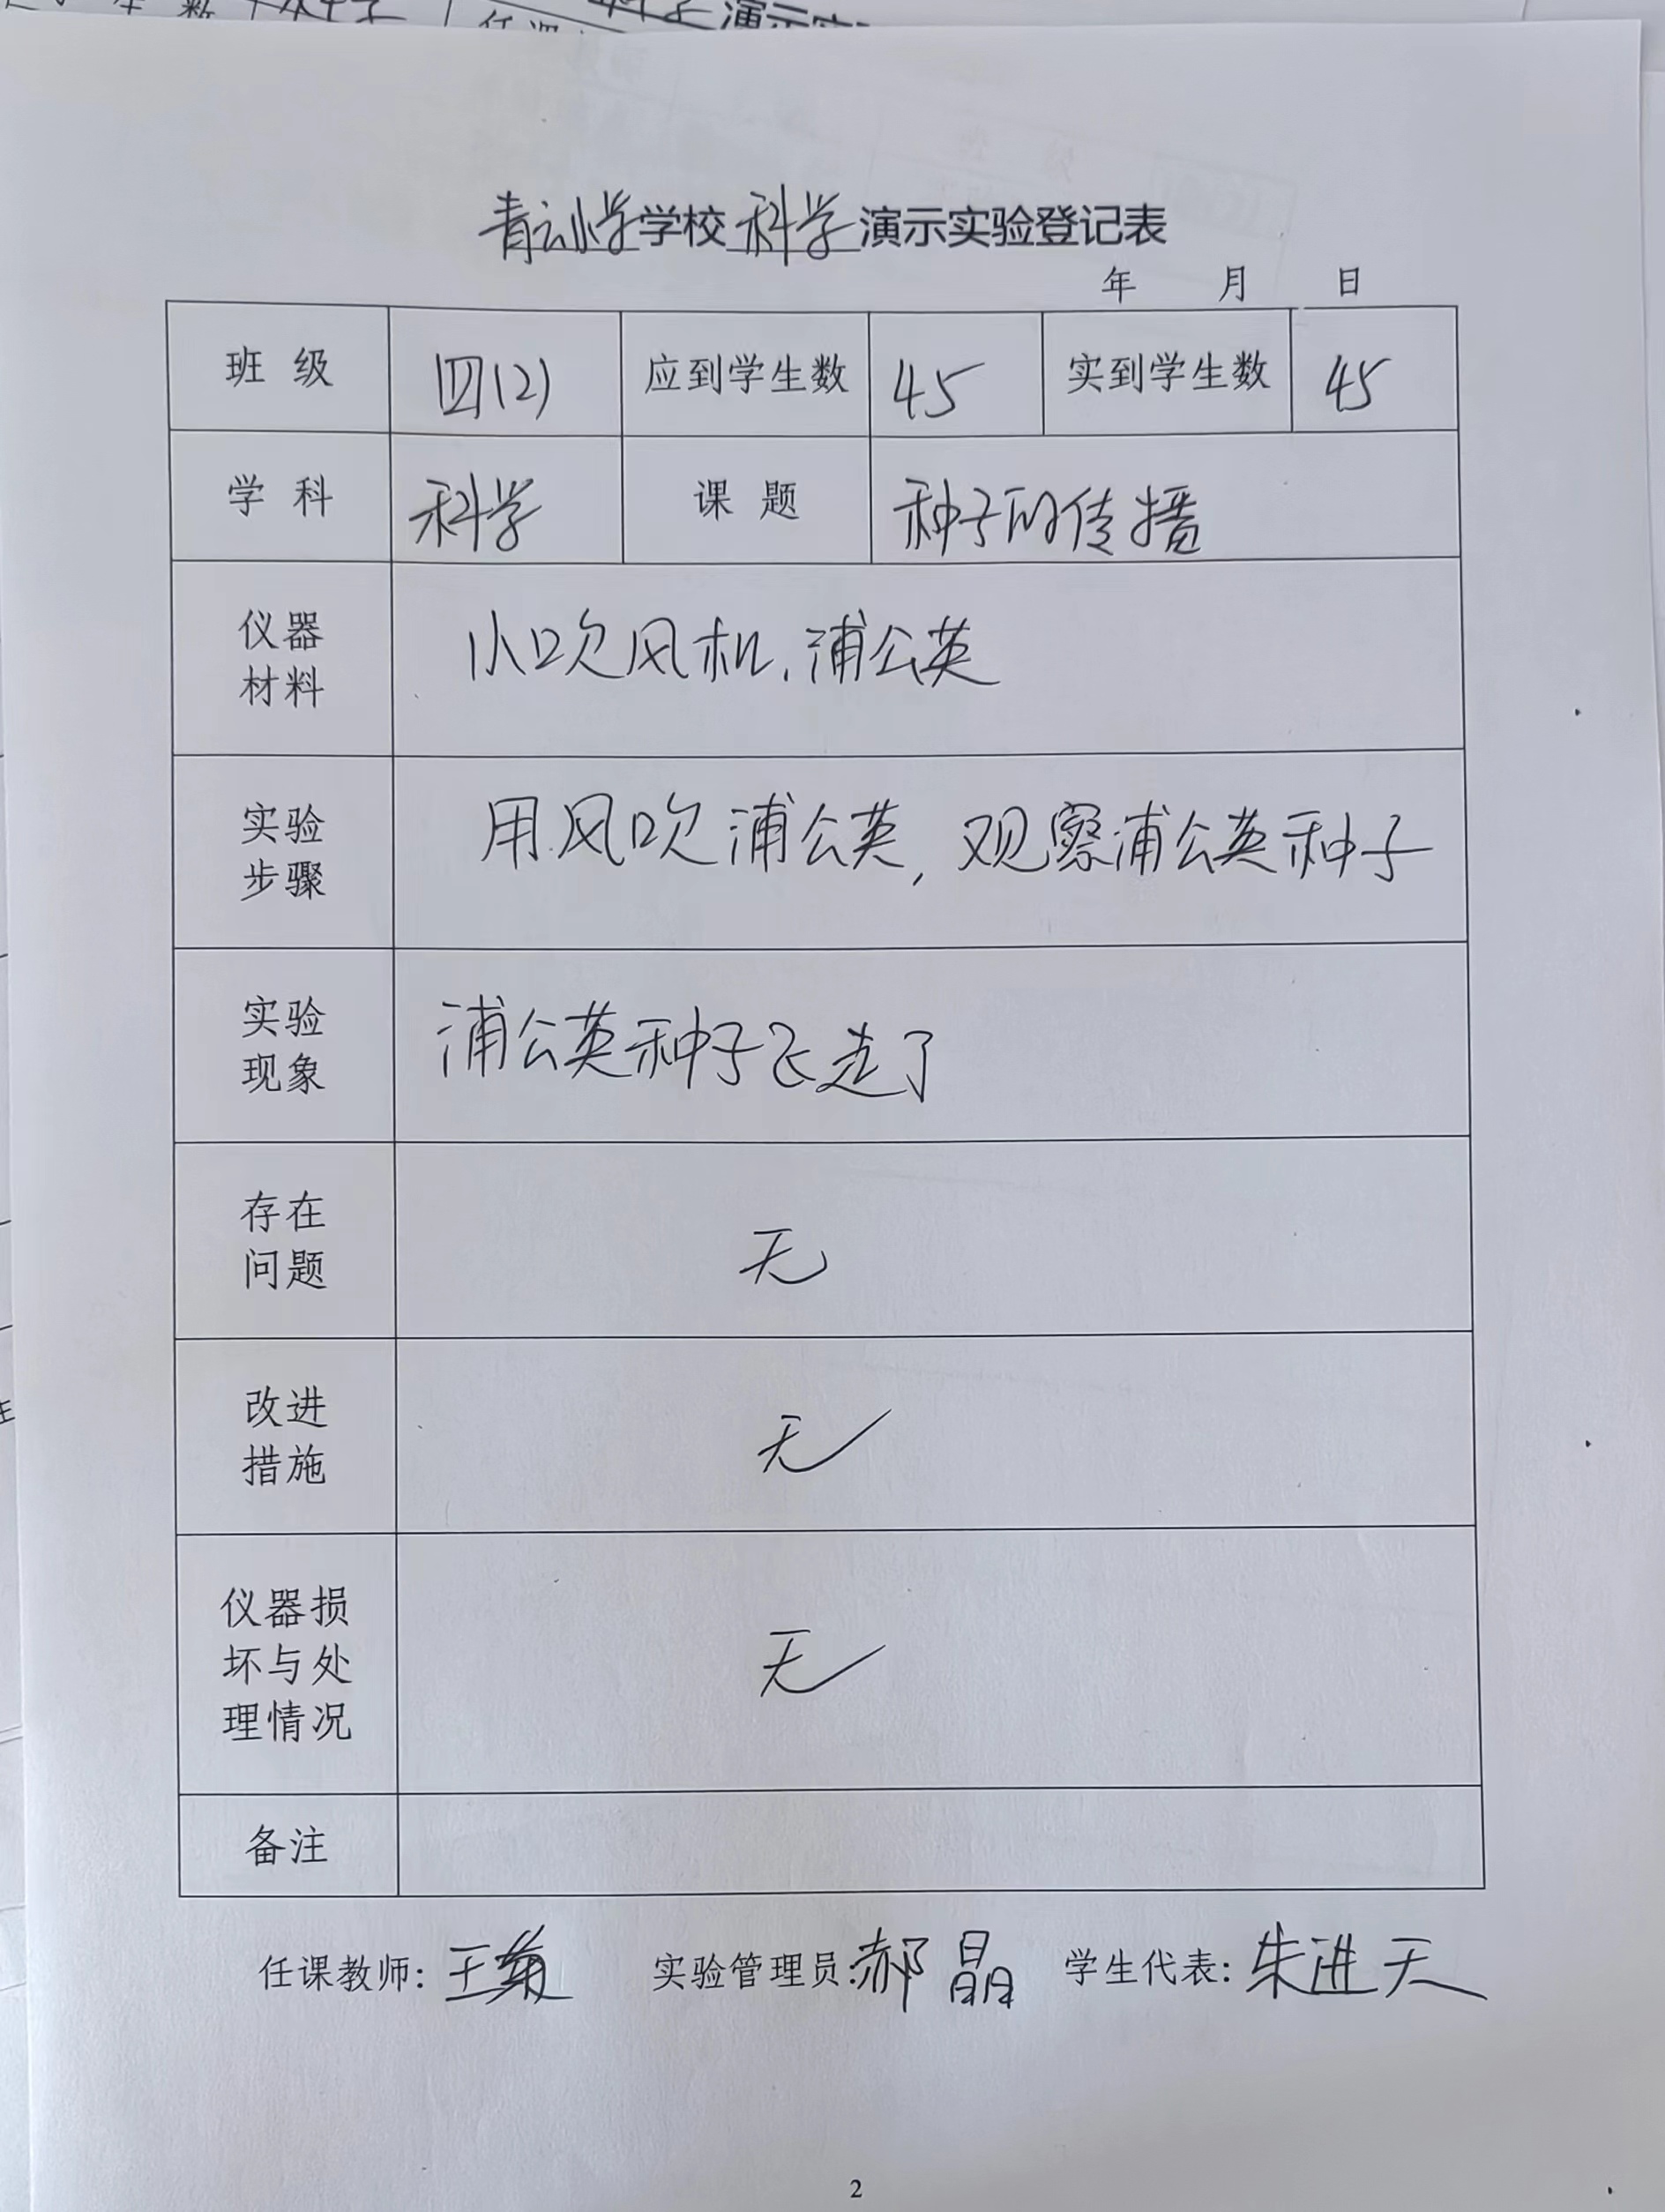 青云小学学校科学演示实验登记表
年 月 日
班 级 四(2) 应到学生数 45 实到学生数 45
学 科 科学 课 题 种子的传播
仪器
材料
小吹风机,浦公英
实验
步骤
用风吹浦公英,观察浦公英种子
实验
现象
浦公英种子飞走了
存在
问题
无
改进
措施
无
仪器损
坏与处
理情况
无
备注
任课教师: 王 实验管理员:郝晶 学生代表:朱进天
2